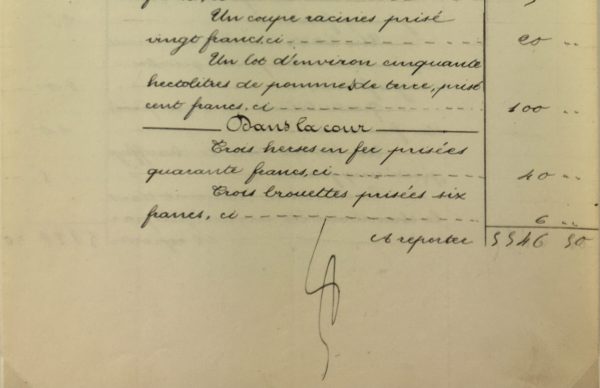 francs, ci
Un coupe racines prisé
vingt francs, ci 20 "
Un lot d'environ cinquante
hectolitres de pommes de terre, prisé
cent francs, ci 100 "
Dans la cour
Trois herses en fer prisées
quarante francs, ci 40 "
Trois brouettes prisées six
francs, ci 6 "
A reporter 5546 50